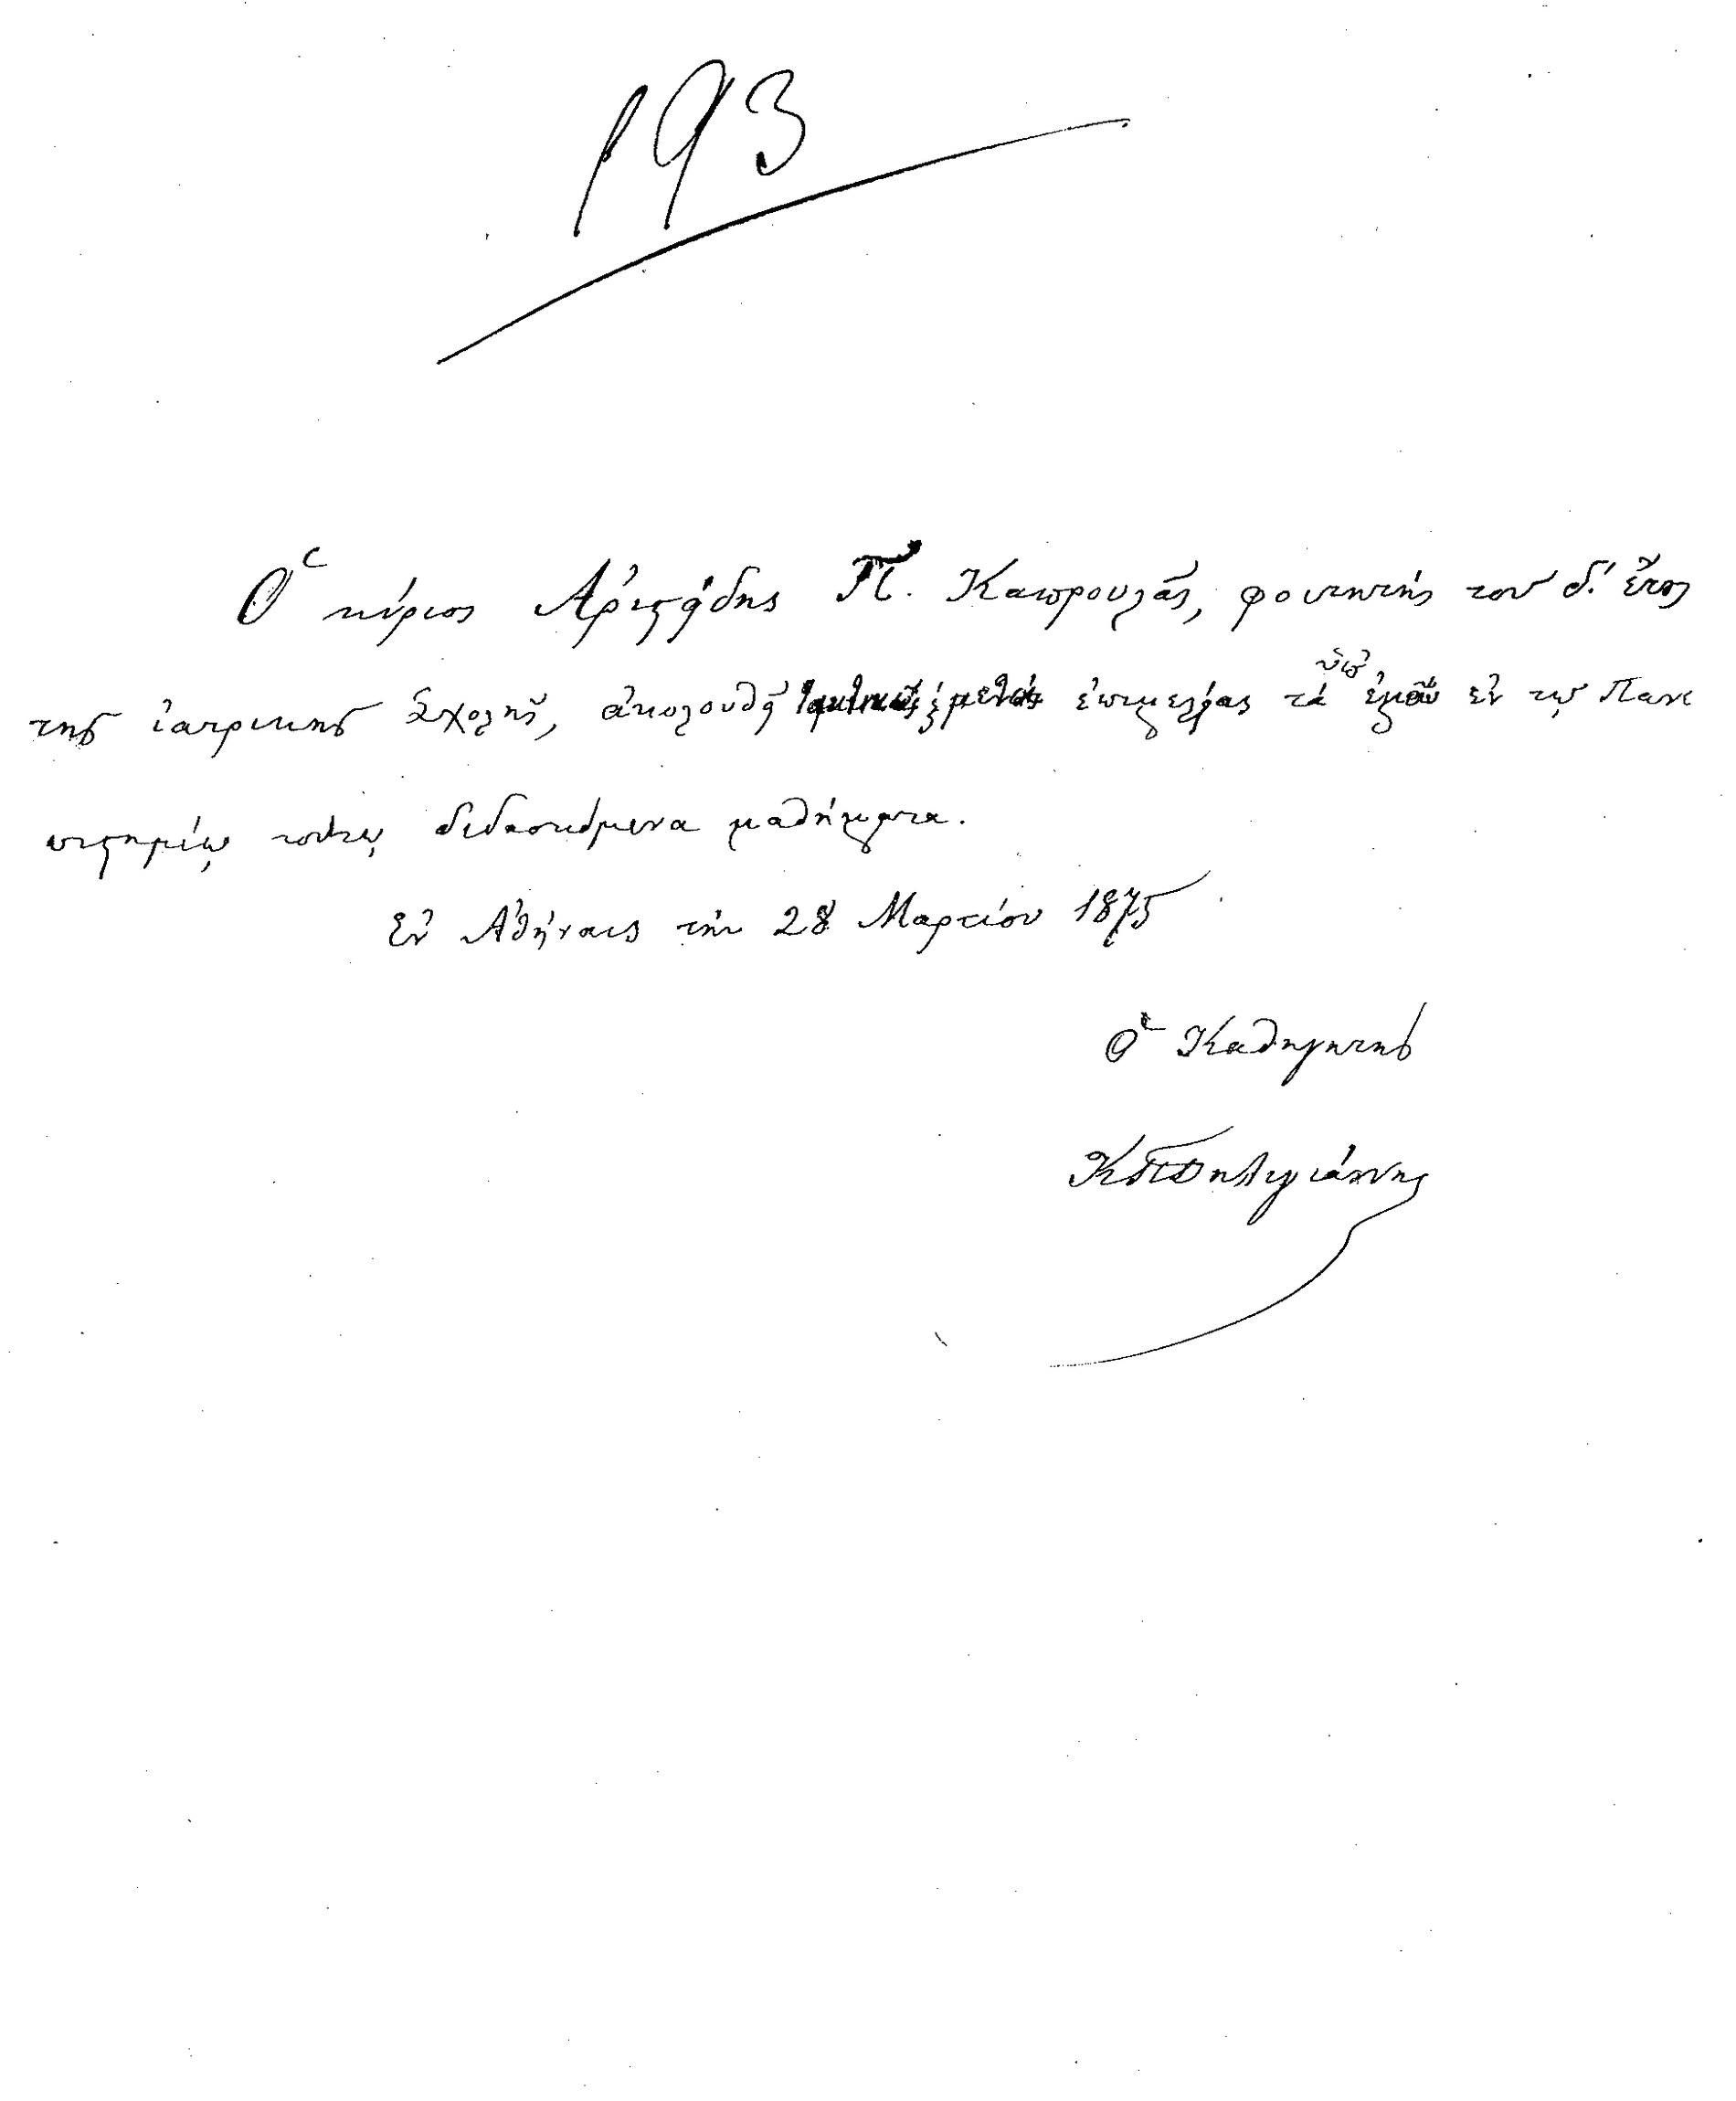 193
Ὁ κύριος Ἀριστείδης Π. Καπρουλᾶς, φοιτητής του δ'. ἔτος
της ἰατρικης Σχολῆς, ἀκολουθεῖ ἐπιμελείας τά ὑπ' ἐμοῦ ἐν τῳ Πανε
πιστημίῳ τούτῳ διδασκόμενα μαθήματα.
Ἐν Ἀθήναις τήν 28 Μαρτίου 1875
Ὁ Καθηγητης
ΚΠΔηλιγιάννης